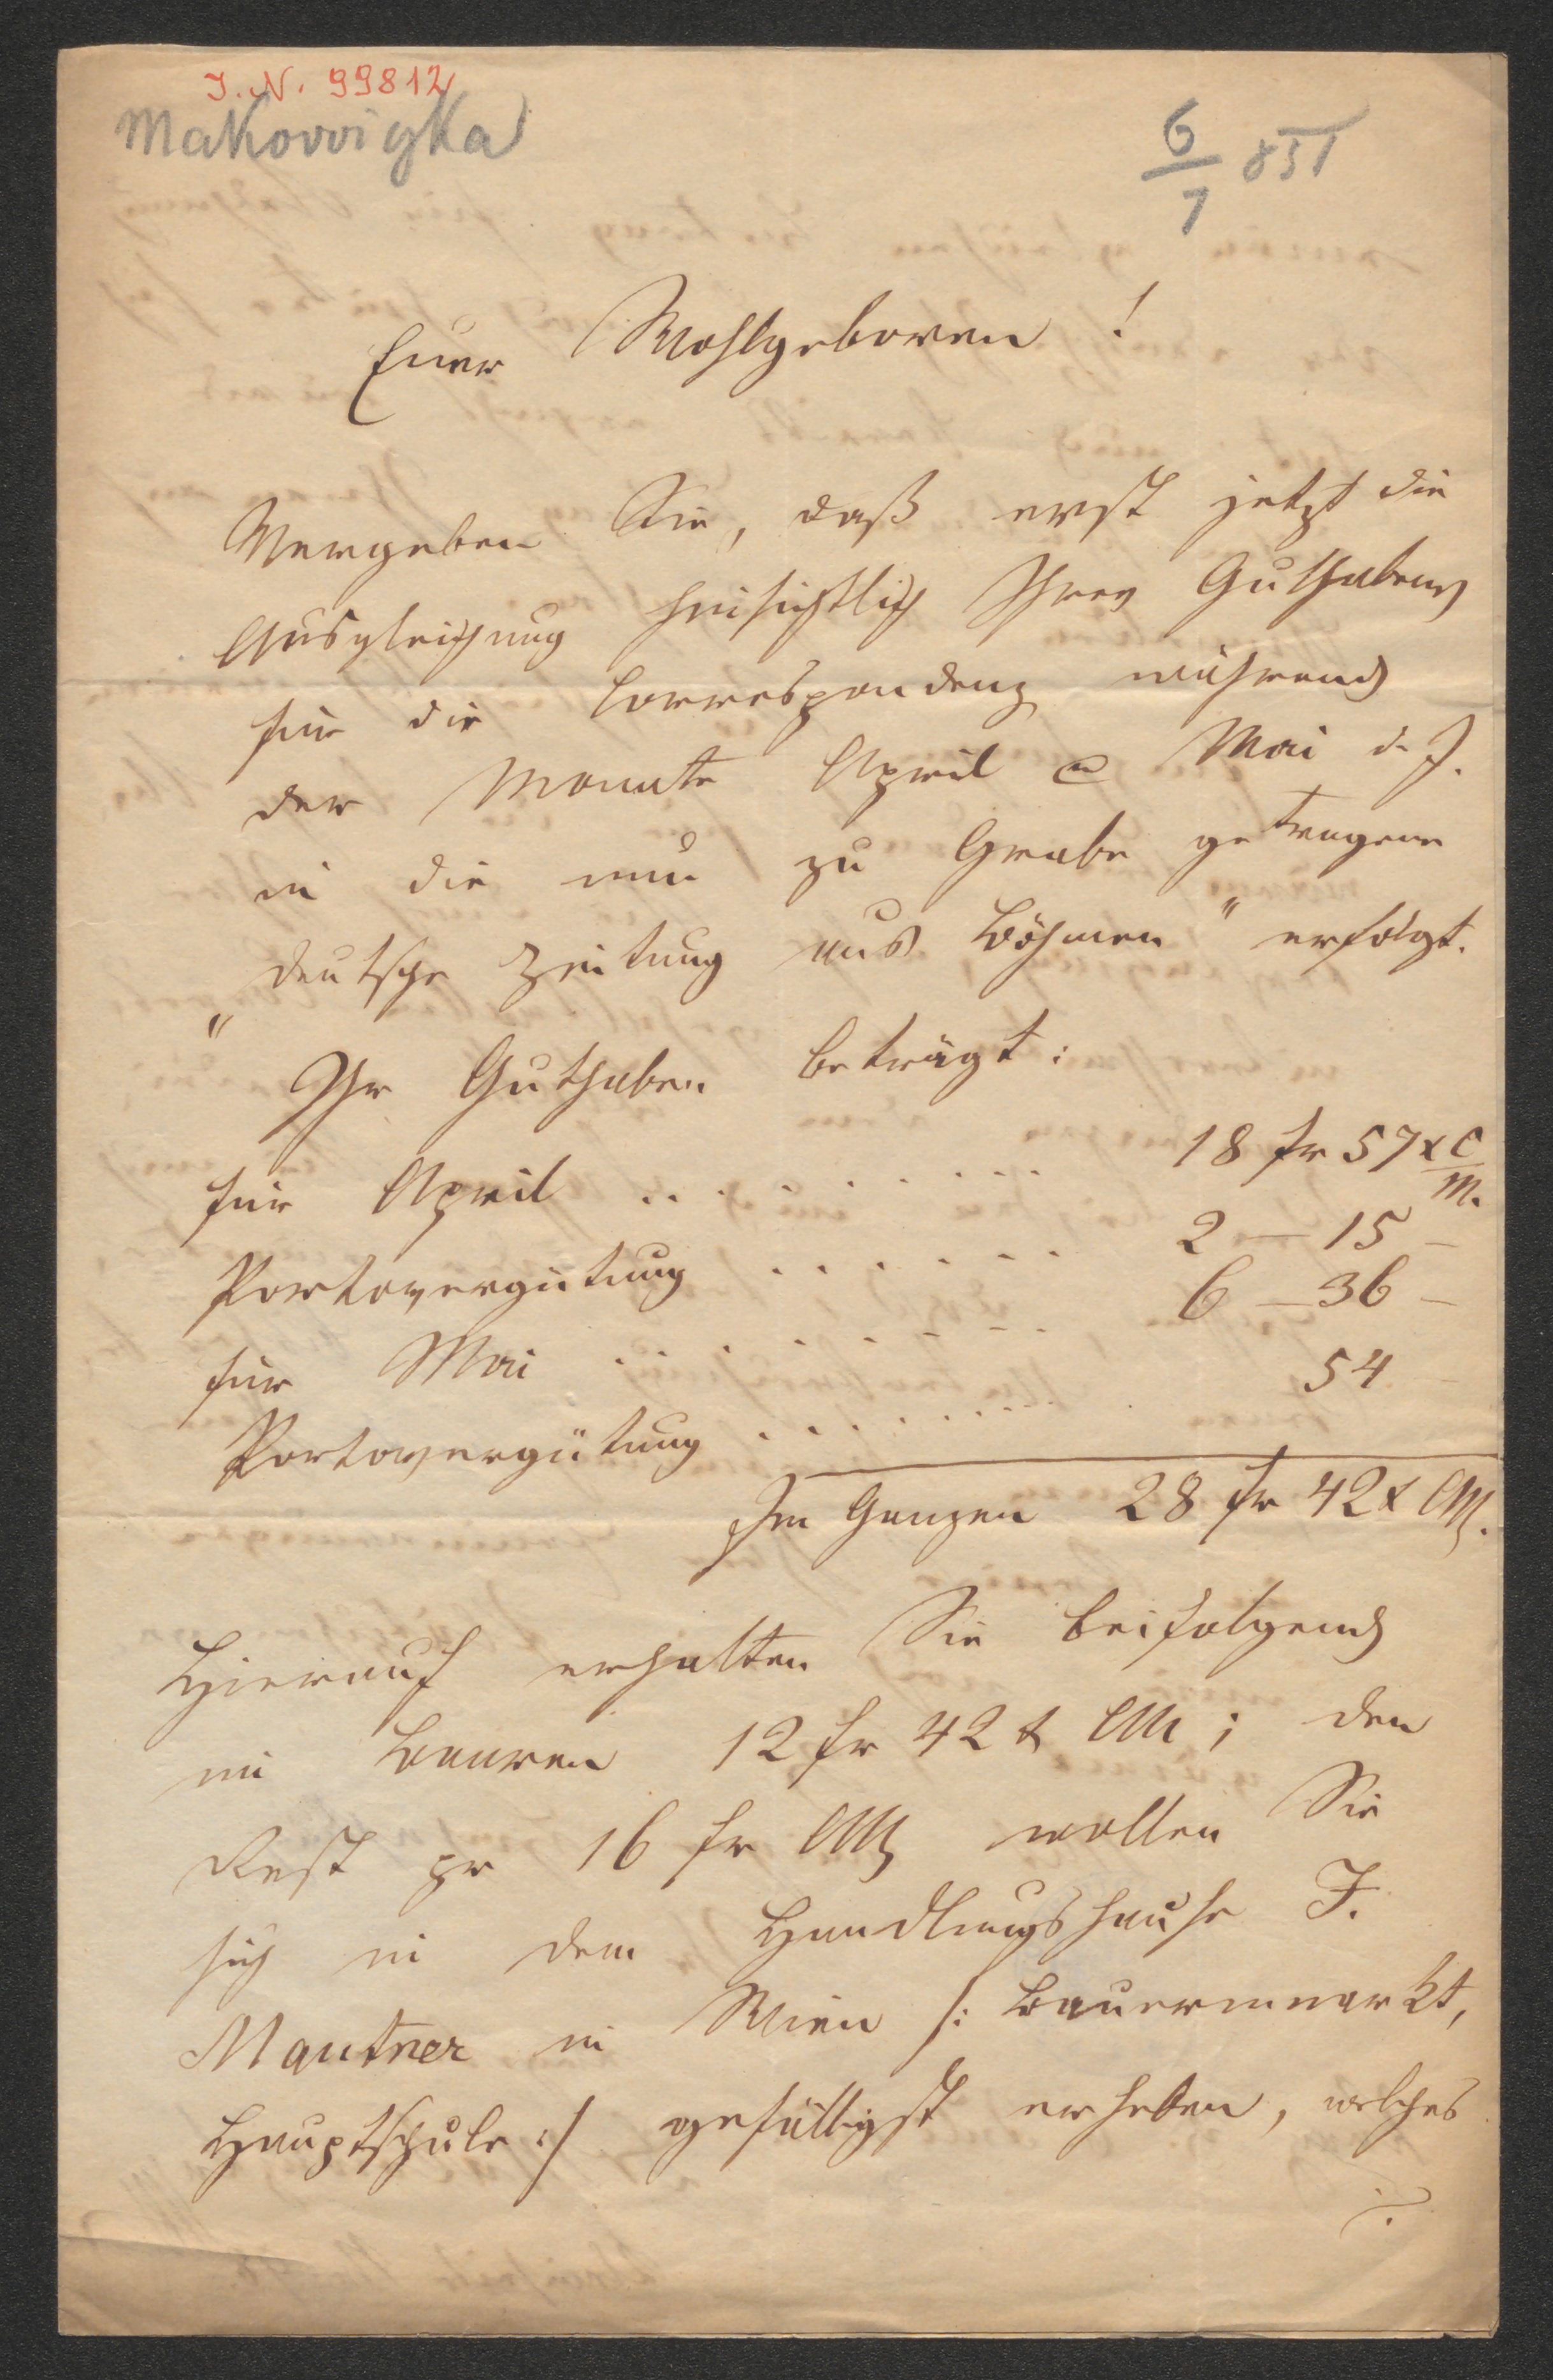 I. N. 99812
Makowiczka
6/7 851
Euer Wohlgeboren!
Vergeben Sie, daß erst jetzt die
Ausgleichung hinsichtlich Ihres Guthabens
für die Correspondenz während
der Monate April u Mai d. J.
in die nun zu Grabe getragene
„Deutsche Zeitung aus Böhmen“ erfolgt.
Ihr Guthaben beträgt:
für April . . . . . . . . . 18 fr 57 x C/M.
Portovergütung . . . . . . 2 — 15 —
für Mai . . . . . . . . 6 — 36 —
Portovergütung . . . . . . . . . 54 —
Im Ganzen 28 fr 42 x CM.
Hierauf erhalten Sie beifolgend
im Baaren 12 fr 42 x CM; den
Rest pr 16 fr CM wollen Sie
sich in dem Handlungshause J.
Mautner in Wien /: Bauernmarkt,
Hauptschule :/ gefälligst erheben, welches
./.